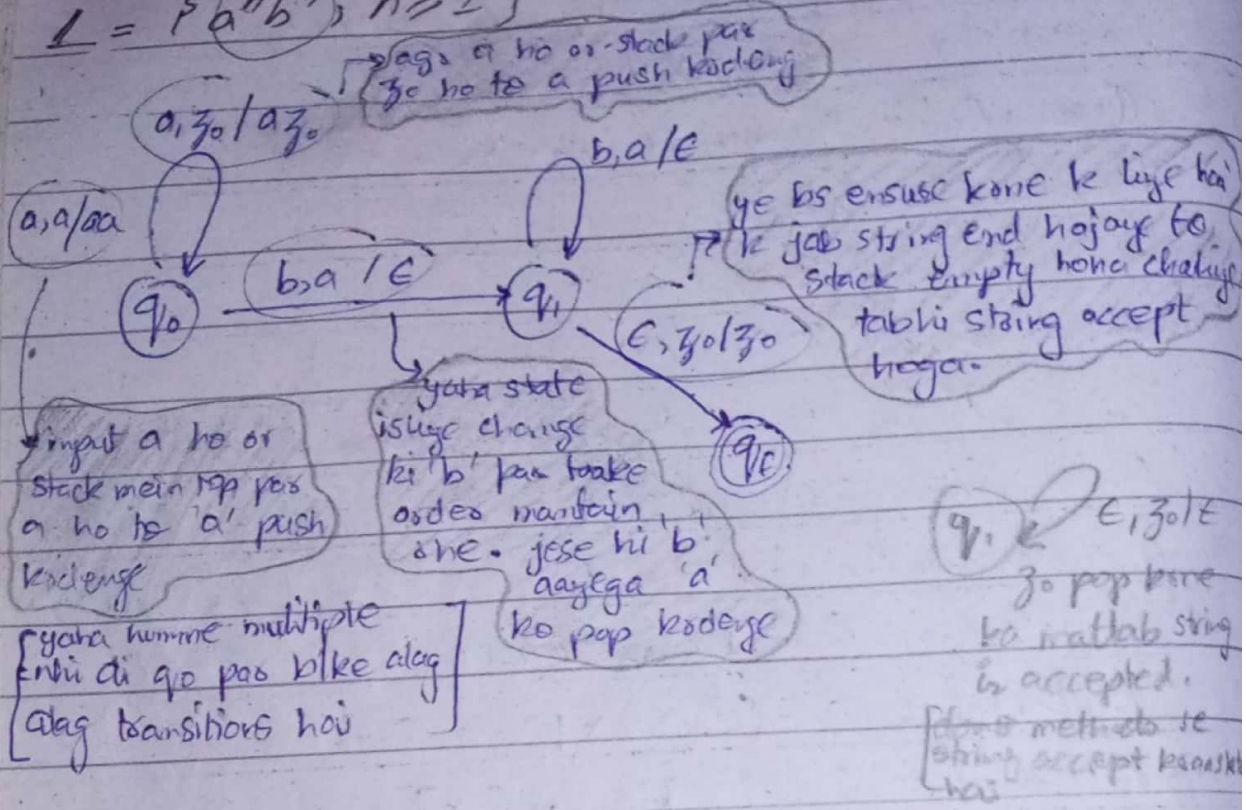 L = { aⁿbⁿ, n ≥ 1 }
a ho or stack par
z₀ ho to a push
a, z₀ / az₀
b, a / ε
a, a/aa
ye bs ensure krne k liye hai
k jab string end hojaye to
stack empty hona chahiye
tabhi string accept
hoga.
b, a / ε
q₀
q₁
ε, z₀/z₀
qf
yaha state
isliye change
ki 'b' par taake
order maintain
rhe. jese hi 'b'
aayega 'a'
ko pop krdenge
input a ho or
stack mein top par
a ho to 'a' push
krdenge
yaha humne multiple
nhi di q₀ par blke alag
alag transitions hai
q₁
ε, z₀/ε
z₀ pop krne
ka matlab string
is accepted.
dono methods se
string accept
hai